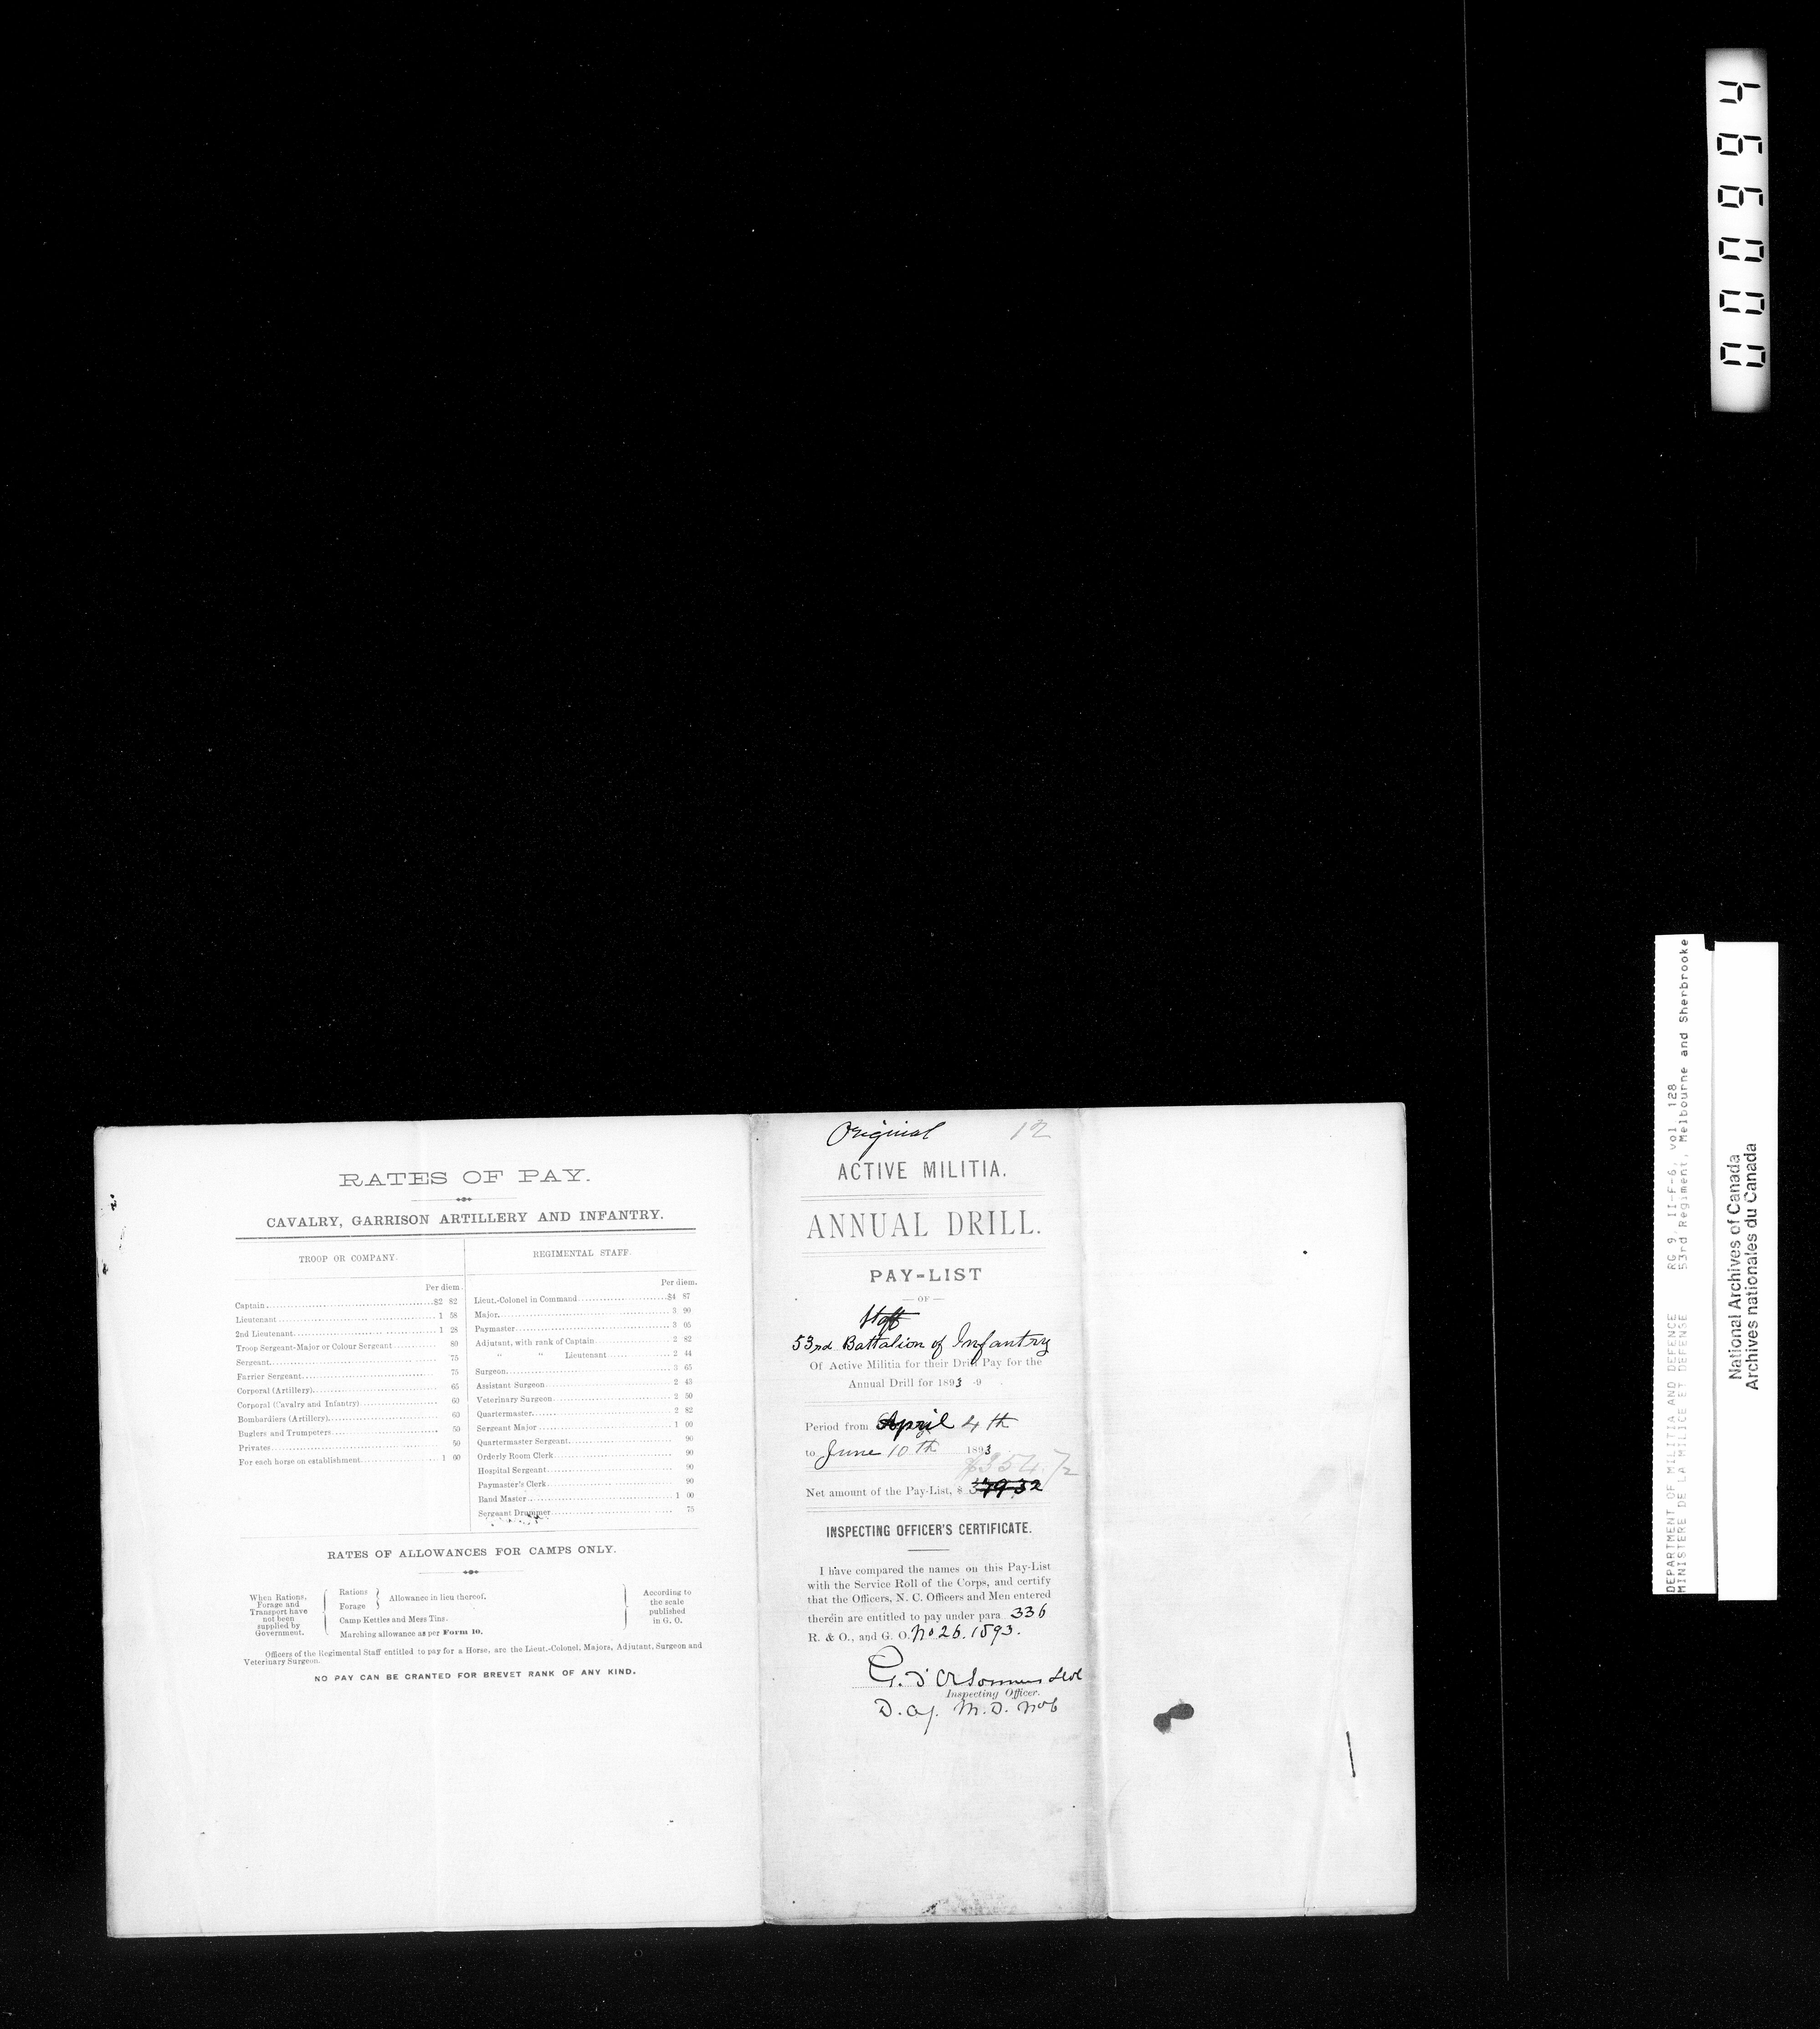 RATES OF PAY.
CAVALRY, GARRISON ARTILLERY AND INFANTRY.
TROOP OR COMPANY.
Per diem.
Captain $2 82
Lieutenant 1 58
2nd Lieutenant 1 28
Troop Sergeant-Major or Colour Sergeant 80
Sergeant 75
Farrier Sergeant 75
Corporal (Artillery) 65
Corporal (Cavalry and Infantry) 60
Bombardiers (Artillery) 60
Buglers and Trumpeters 50
Privates 50
For each horse on establishment 1 00
REGIMENTAL STAFF.
Per diem.
Lieut.-Colonel in Command $4 87
Major 3 90
Paymaster 3 05
Adjutant, with rank of Captain 2 82
" " Lieutenant 2 44
Surgeon 3 65
Assistant Surgeon 2 43
Veterinary Surgeon 2 50
Quartermaster 2 82
Sergeant Major 1 00
Quartermaster Sergeant 90
Orderly Room Clerk 90
Hospital Sergeant 90
Paymaster's Clerk 90
Band Master 1 00
Sergeant Drummer 75
RATES OF ALLOWANCES FOR CAMPS ONLY.
When Rations,
Forage and
Transport have
not been
supplied by
Government.
Rations
Forage
Allowance in lieu thereof.
Camp Kettles and Mess Tins.
Marching allowance as per Form 10.
According to
the scale
published
in G. O.
Officers of the Regimental Staff entitled to pay for a Horse, are the Lieut.-Colonel, Majors, Adjutant, Surgeon and
Veterinary Surgeon.
NO PAY CAN BE GRANTED FOR BREVET RANK OF ANY KIND.
Original 12
ACTIVE MILITIA.
ANNUAL DRILL.
PAY-LIST
— OF —
Staff
53rd Battalion of Infantry
Of Active Militia for their Drill Pay for the
Annual Drill for 1893 -9
Period from April 4th
to June 10th 1893
$354.72
Net amount of the Pay-List, $
INSPECTING OFFICER'S CERTIFICATE.
I have compared the names on this Pay-List
with the Service Roll of the Corps, and certify
that the Officers, N. C. Officers and Men entered
therein are entitled to pay under para 336
R. & O., and G. O. No 26. 1893.
Inspecting Officer.
M.D. No 6
466000
DEPARTMENT OF MILITIA AND DEFENCE RG 9, II-F-6, vol 128
MINISTERE DE LA MILICE ET DEFENSE 53rd Regiment, Melbourne and Sherbrooke
National Archives of Canada
Archives nationales du Canada